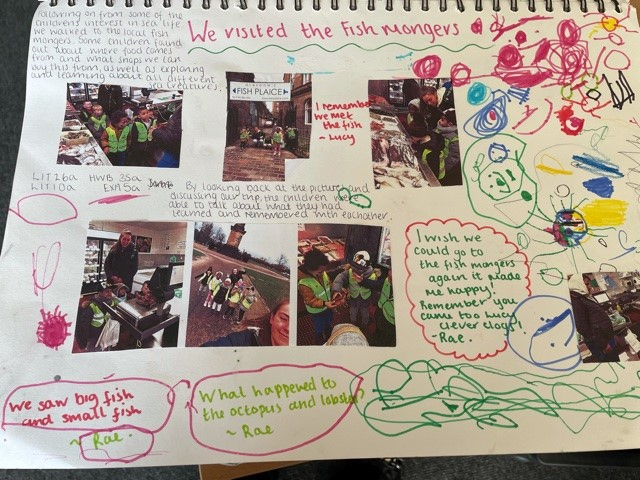 Following on from some of the
childrens interest in sea life
we walked to the local fish
mongers. Some children found
out about where food comes
from and what shops we can
buy this from, as well as exploring
and learning about all different
sea creatures.
We visited the Fish mongers
FISH PLAICE
I remember
we met the
fish
~ Lucy
LIT26a HWB 35a
LIT10a EXA5a
By looking back at the pictures and
discussing our trip, the children were
able to talk about what they had
learned and remembered with eachother.
I wish we
could go to
the fish mongers
again it made
me happy!
Remember you
came too Lucy
clever clogs!
- Rae.
We saw big fish
and small fish
~ Rae.
What happened to
the octopus and lobster?
~ Rae